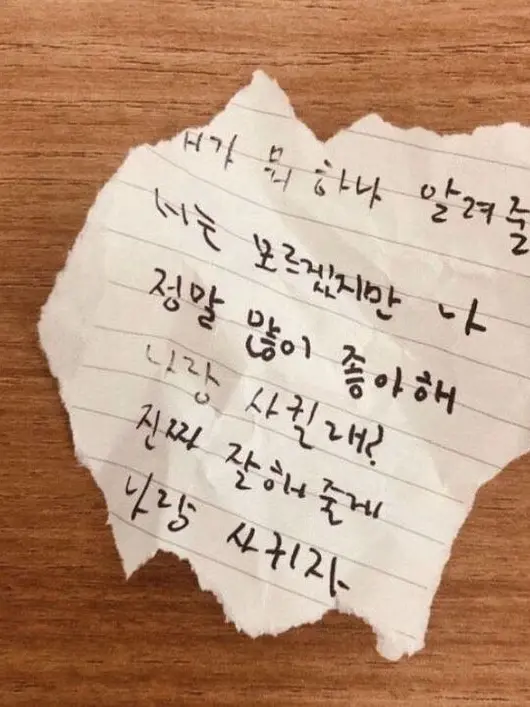 내가 뭐 하나 알려줄
너는 모르겠지만 나
정말 많이 좋아해
나랑 사귈래?
진짜 잘해줄게
나랑 사귀자